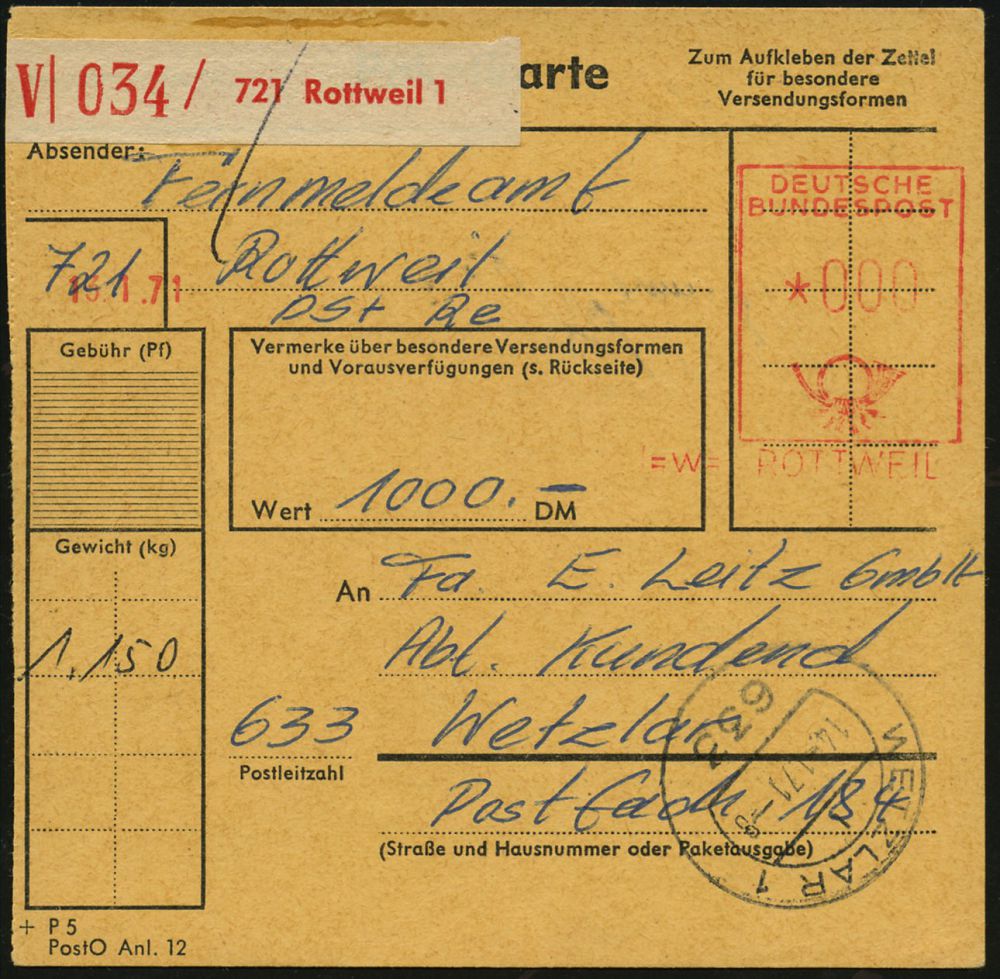 V 034 / 721 Rottweil 1
arte
Zum Aufkleben der Zettel
für besondere
Versendungsformen
Absender:
Fernmeldeamt
721 Rottweil
1.71
DSt Re
DEUTSCHE
BUNDESPOST
*000
=W= ROTTWEIL
Gebühr (Pf)
Vermerke über besondere Versendungsformen
und Vorausverfügungen (s. Rückseite)
Wert 1000.— DM
Gewicht (kg)
1,150
An Fa. E. Leitz GmbH
Abt. Kundend
633 Wetzlar
Postleitzahl
Postfach 184
(Straße und Hausnummer oder Paketausgabe)
633
WETZLAR 1
+ P 5
PostO Anl. 12